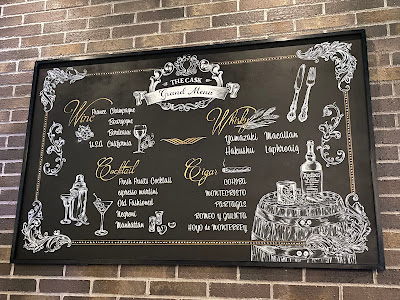 THE CASK
Grand Menu
Wine
France Champagne
Bourgogne
Bordeaux
U.S.A California
Whisky
Yamazaki Macallan
Hakushu Laphroaig
Cocktail
Fresh Fruits Cocktail
espresso martini
Old Fashioned
Negroni
Manhattan
Cigar
COHIBA
MONTECRISTO
PARTAGAS
ROMEO Y JULIETA
HOYO de MONTERREY